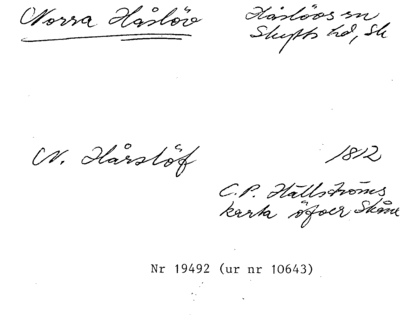 Norra Håslöv
Håslövs sn
Skytts hd, Sk
N. Hårslöf
1812
C.P. Hällströms
karta öfver Skåne
Nr 19492 (ur nr 10643)